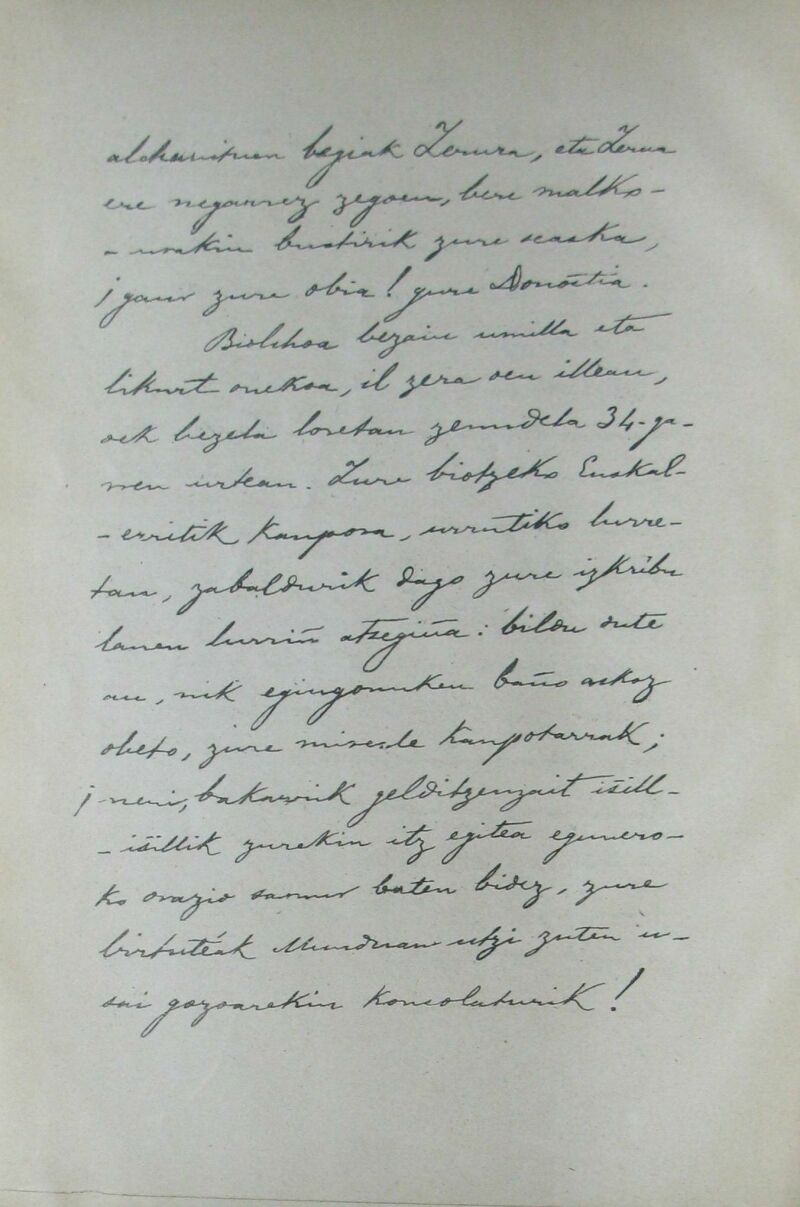 alchauituen begiak Zerura, eta Zerua
ere negarrez zegoen, bere malko-
- urakin bustirik zure seaska,
¡gaur zure obia! gure Donostia.
Biolchoa bezain umilla eta
likurt onekoa, il zera oen illean,
oek bezela loretan zenudela 34-ga-
rren urtean. Zure biotzeko Euskal-
- erritik kanpora, urrutiko lurre-
tan, zabaldurik dago zure izkribu
lanen lurriñ atsegiña: bildu dute
au, nik egingonuken baño askoz
obeto, zure miresle kanpotarrak;
¡neri, bakarrik gelditzenzait isill-
- isillik zurekin itz egitea egunero-
ko orazio samur baten bidez, zure
birtuteak Munduan utzi zuten u-
sai gozoarekin konsolaturik!